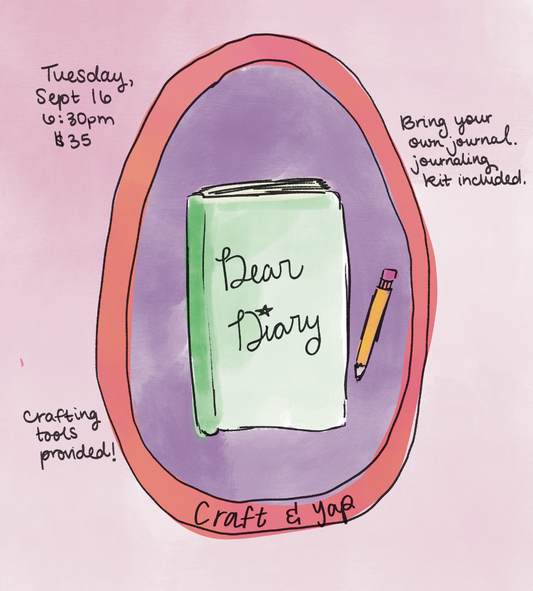 Tuesday,
Sept 16
6:30pm
$35
Bring your
own journal.
journaling
kit included.
Dear
Diary
Crafting
tools
provided!
Craft & Yap